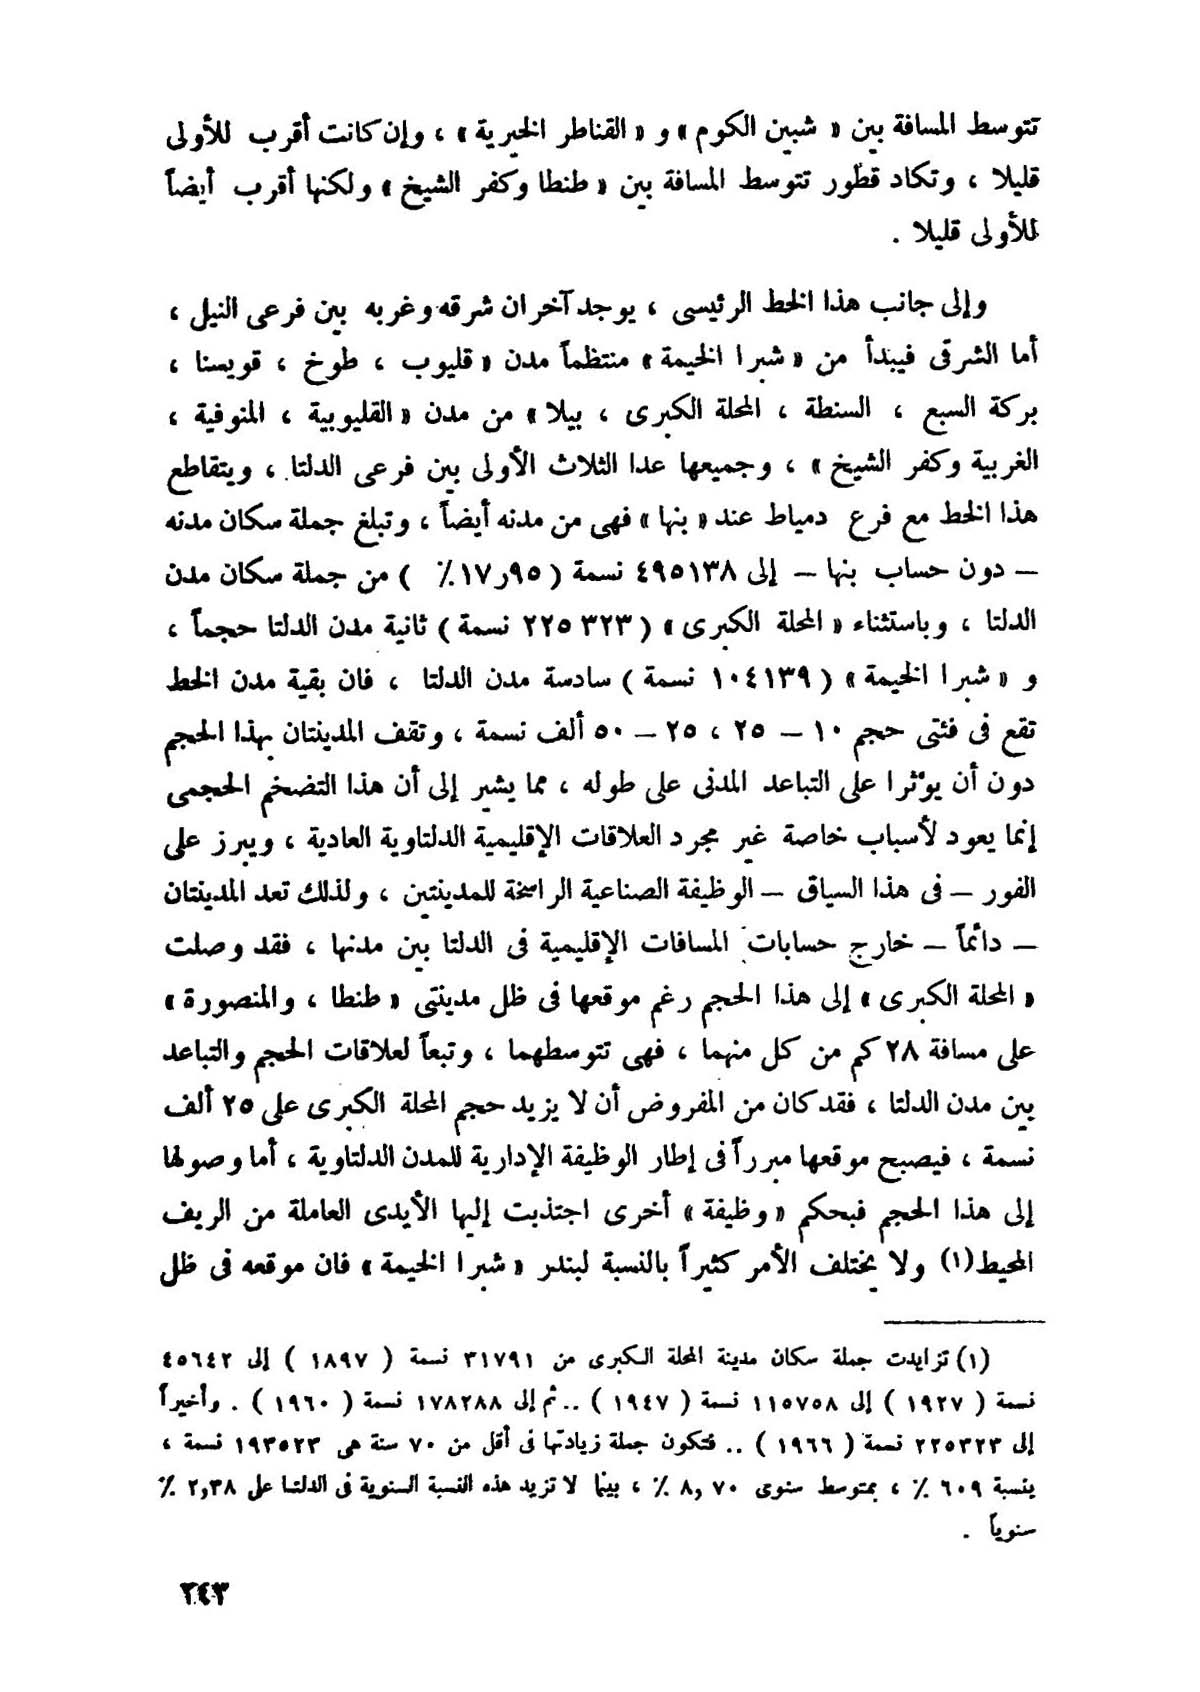 تتوسط المسافة بين « شبين الكوم » و « القناطر الخيرية » ، وإن كانت أقرب للأولى
قليلا ، وتكاد قطور تتوسط المسافة بين « طنطا وكفر الشيخ » ولكنها أقرب أيضاً
للأولى قليلا .
وإلى جانب هذا الخط الرئيسى ، يوجد آخران شرقه وغربه بين فرعى النيل ،
أما الشرقى فيبدأ من « شبرا الخيمة » منتظماً مدن « قليوب ، طوخ ، قويسنا ،
بركة السبع ، السنطة ، المحلة الكبرى ، بيلا » من مدن « القليوبية ، المنوفية ،
الغربية وكفر الشيخ » ، وجميعها عدا الثلاث الأولى بين فرعى الدلتا ، ويتقاطع
هذا الخط مع فرع دمياط عند « بنها » فهى من مدنه أيضاً ، وتبلغ جملة سكان مدنه
– دون حساب بنها – إلى ٤٩٥١٣٨ نسمة ( ٩٥ر١٧٪ ) من جملة سكان مدن
الدلتا ، وباستثناء « المحلة الكبرى » ( ٢٢٥٣٢٣ نسمة ) ثانية مدن الدلتا حجماً ،
و « شبرا الخيمة » ( ١٠٤١٣٩ نسمة ) سادسة مدن الدلتا ، فان بقية مدن الخط
تقع فى فئتى حجم ١٠ – ٢٥ ، ٢٥ – ٥٠ ألف نسمة ، وتقف المدينتان بهذا الحجم
دون أن يؤثرا على التباعد المدنى على طوله ، مما يشير إلى أن هذا التضخم الحجمى
إنما يعود لأسباب خاصة غير مجرد العلاقات الإقليمية الدلتاوية العادية ، ويبرز على
الفور – فى هذا السياق – الوظيفة الصناعية الراسخة للمدينتين ، ولذلك تعد المدينتان
– دائماً – خارج حسابات المسافات الإقليمية فى الدلتا بين مدنها ، فقد وصلت
« المحلة الكبرى » إلى هذا الحجم رغم موقعها فى ظل مدينتى « طنطا ، والمنصورة »
على مسافة ٢٨ كم من كل منهما ، فهى تتوسطهما ، وتبعاً لعلاقات الحجم والتباعد
بين مدن الدلتا ، فقد كان من المفروض أن لا يزيد حجم المحلة الكبرى على ٢٥ ألف
نسمة ، فيصبح موقعها مبرراً فى إطار الوظيفة الإدارية للمدن الدلتاوية ، أما وصولها
إلى هذا الحجم فبحكم « وظيفة » أخرى اجتذبت إليها الأيدى العاملة من الريف
المحيط(١) ولا يختلف الأمر كثيراً بالنسبة لبندر « شبرا الخيمة » فان موقعه فى ظل
(١) تزايدت جملة سكان مدينة المحلة الكبرى من ٣١٧٩١ نسمة ( ١٨٩٧ ) إلى ٤٥٦٤٢
نسمة ( ١٩٢٧ ) إلى ١١٥٧٥٨ نسمة ( ١٩٤٧ ) .. ثم إلى ١٧٨٢٨٨ نسمة ( ١٩٦٠ ) . وأخيراً
إلى ٢٢٥٣٢٣ نسمة ( ١٩٦٦ ) .. فتكون جملة زيادتها فى أقل من ٧٠ سنة هى ١٩٣٥٢٣ نسمة ،
بنسبة ٦٠٩ ٪ ، بمتوسط سنوى ٨,٧٠ ٪ ، بينما لا تزيد هذه النسبة السنوية فى الدلتا على ٢,٣٨ ٪
سنوياً .
٢٤٣